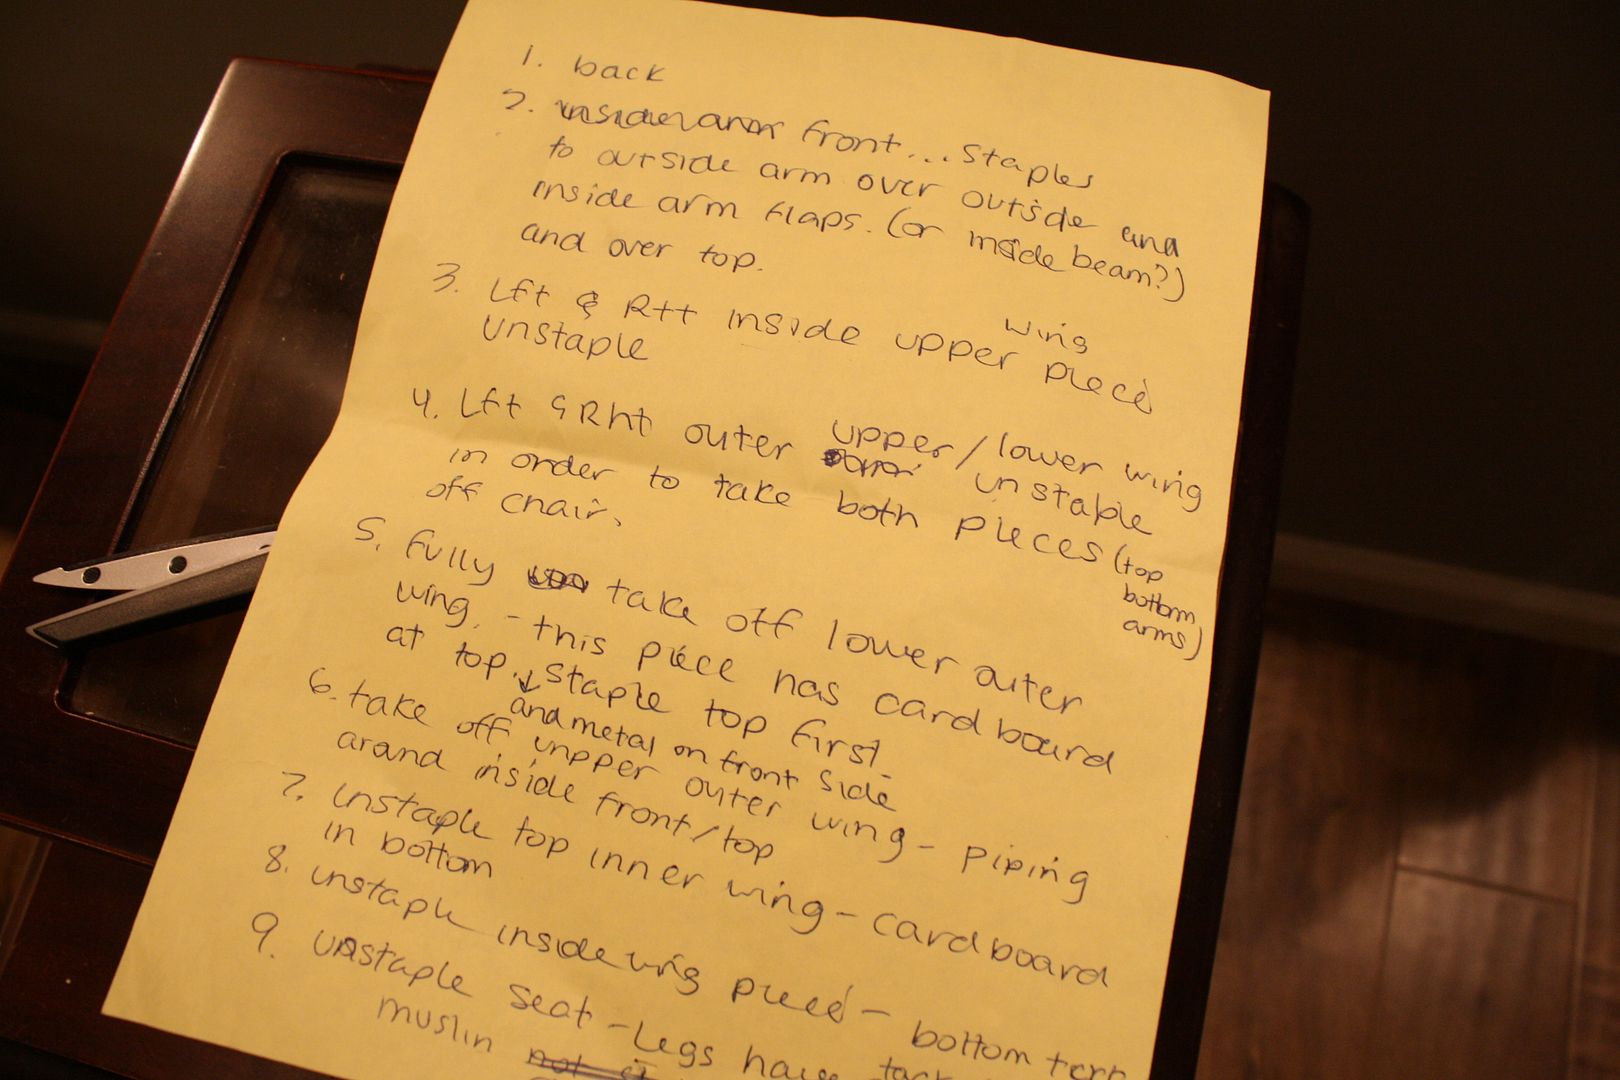 1. back
2. front... Staples
to outside arm over outside and
inside arm flaps. (or inside beam?)
and over top.
3. Lft & Rtt inside upper wing piece
unstaple
4. Lft & Rht outer upper/lower wing
in order to take both pieces (top bottom arms) unstable
off chair.
5. fully take off lower outer
wing. - this piece has cardboard
at top. Staple top first.
and metal on front side
6. take off unpper outer wing - piping
arand inside front/top
7. unstaple top inner wing - cardboard
in bottom
8. unstaple inside wing piece - bottom
9. unstaple seat - Legs have
muslin not